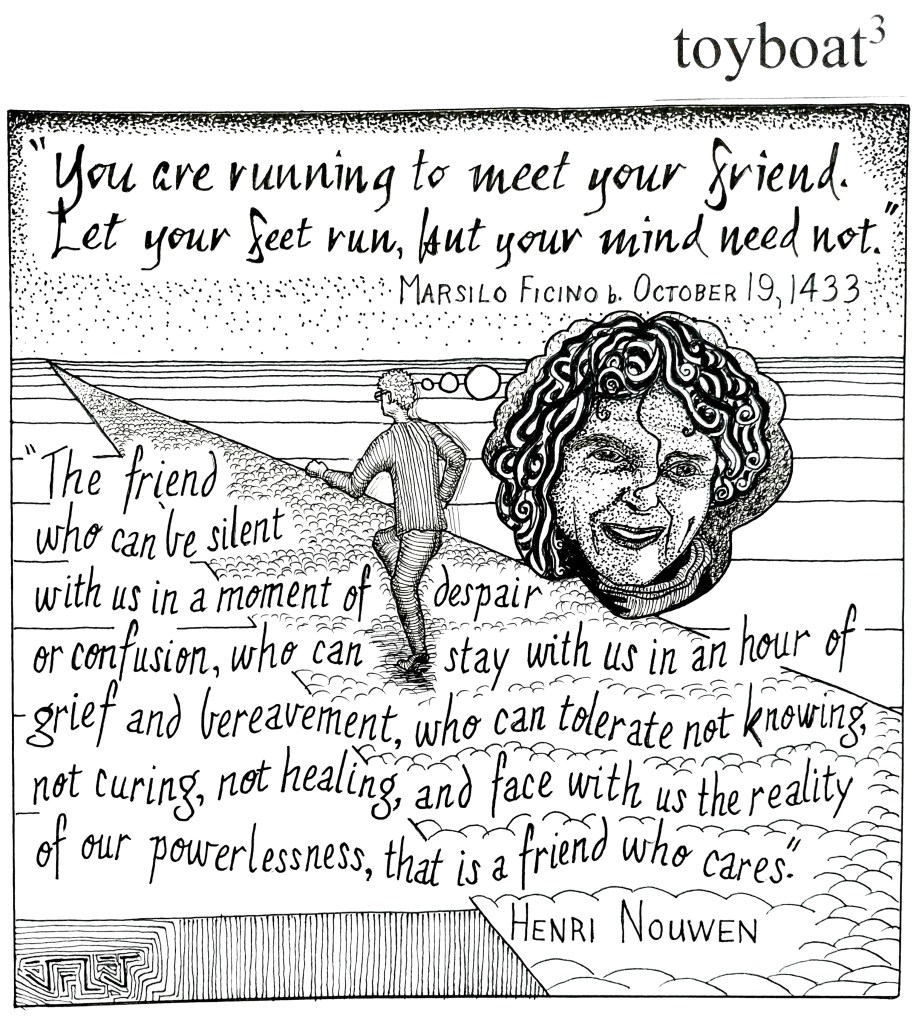 toyboat³
"You are running to meet your friend.
Let your feet run, but your mind need not."
MARSILO FICINO b. OCTOBER 19, 1433
"The friend
who can be silent
with us in a moment of despair
or confusion, who can stay with us in an hour of
grief and bereavement, who can tolerate not knowing,
not curing, not healing, and face with us the reality
of our powerlessness, that is a friend who cares."
HENRI NOUWEN